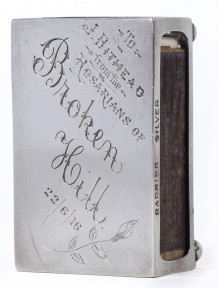 To
J. BITHEAD
from the
ROSARIANS OF
Broken
Hill.
22/6/16
BARRIER SILVER